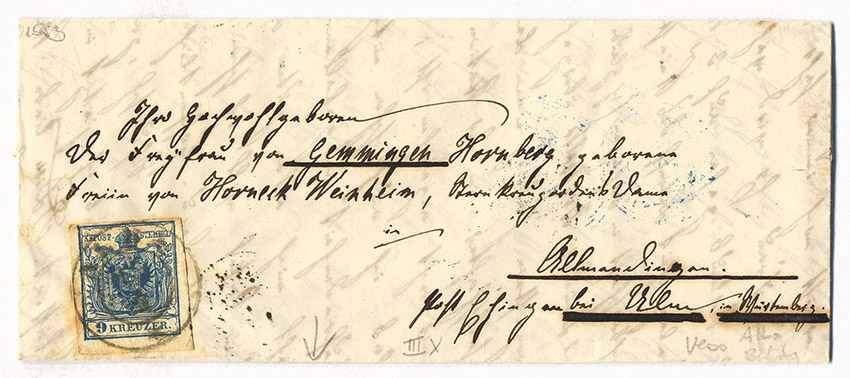 1853
Ihro Hochwohlgeboren
Der Freÿfrau von Gemmingen Hornberg geborene
Freiin von Horneck Weinheim, Sternkreuzordens Dame
in
Allmendingen.
post Ehingen bei Ulm, in Würtemberg.
KKPOST-STEMPEL
9 KREUZER.
III X